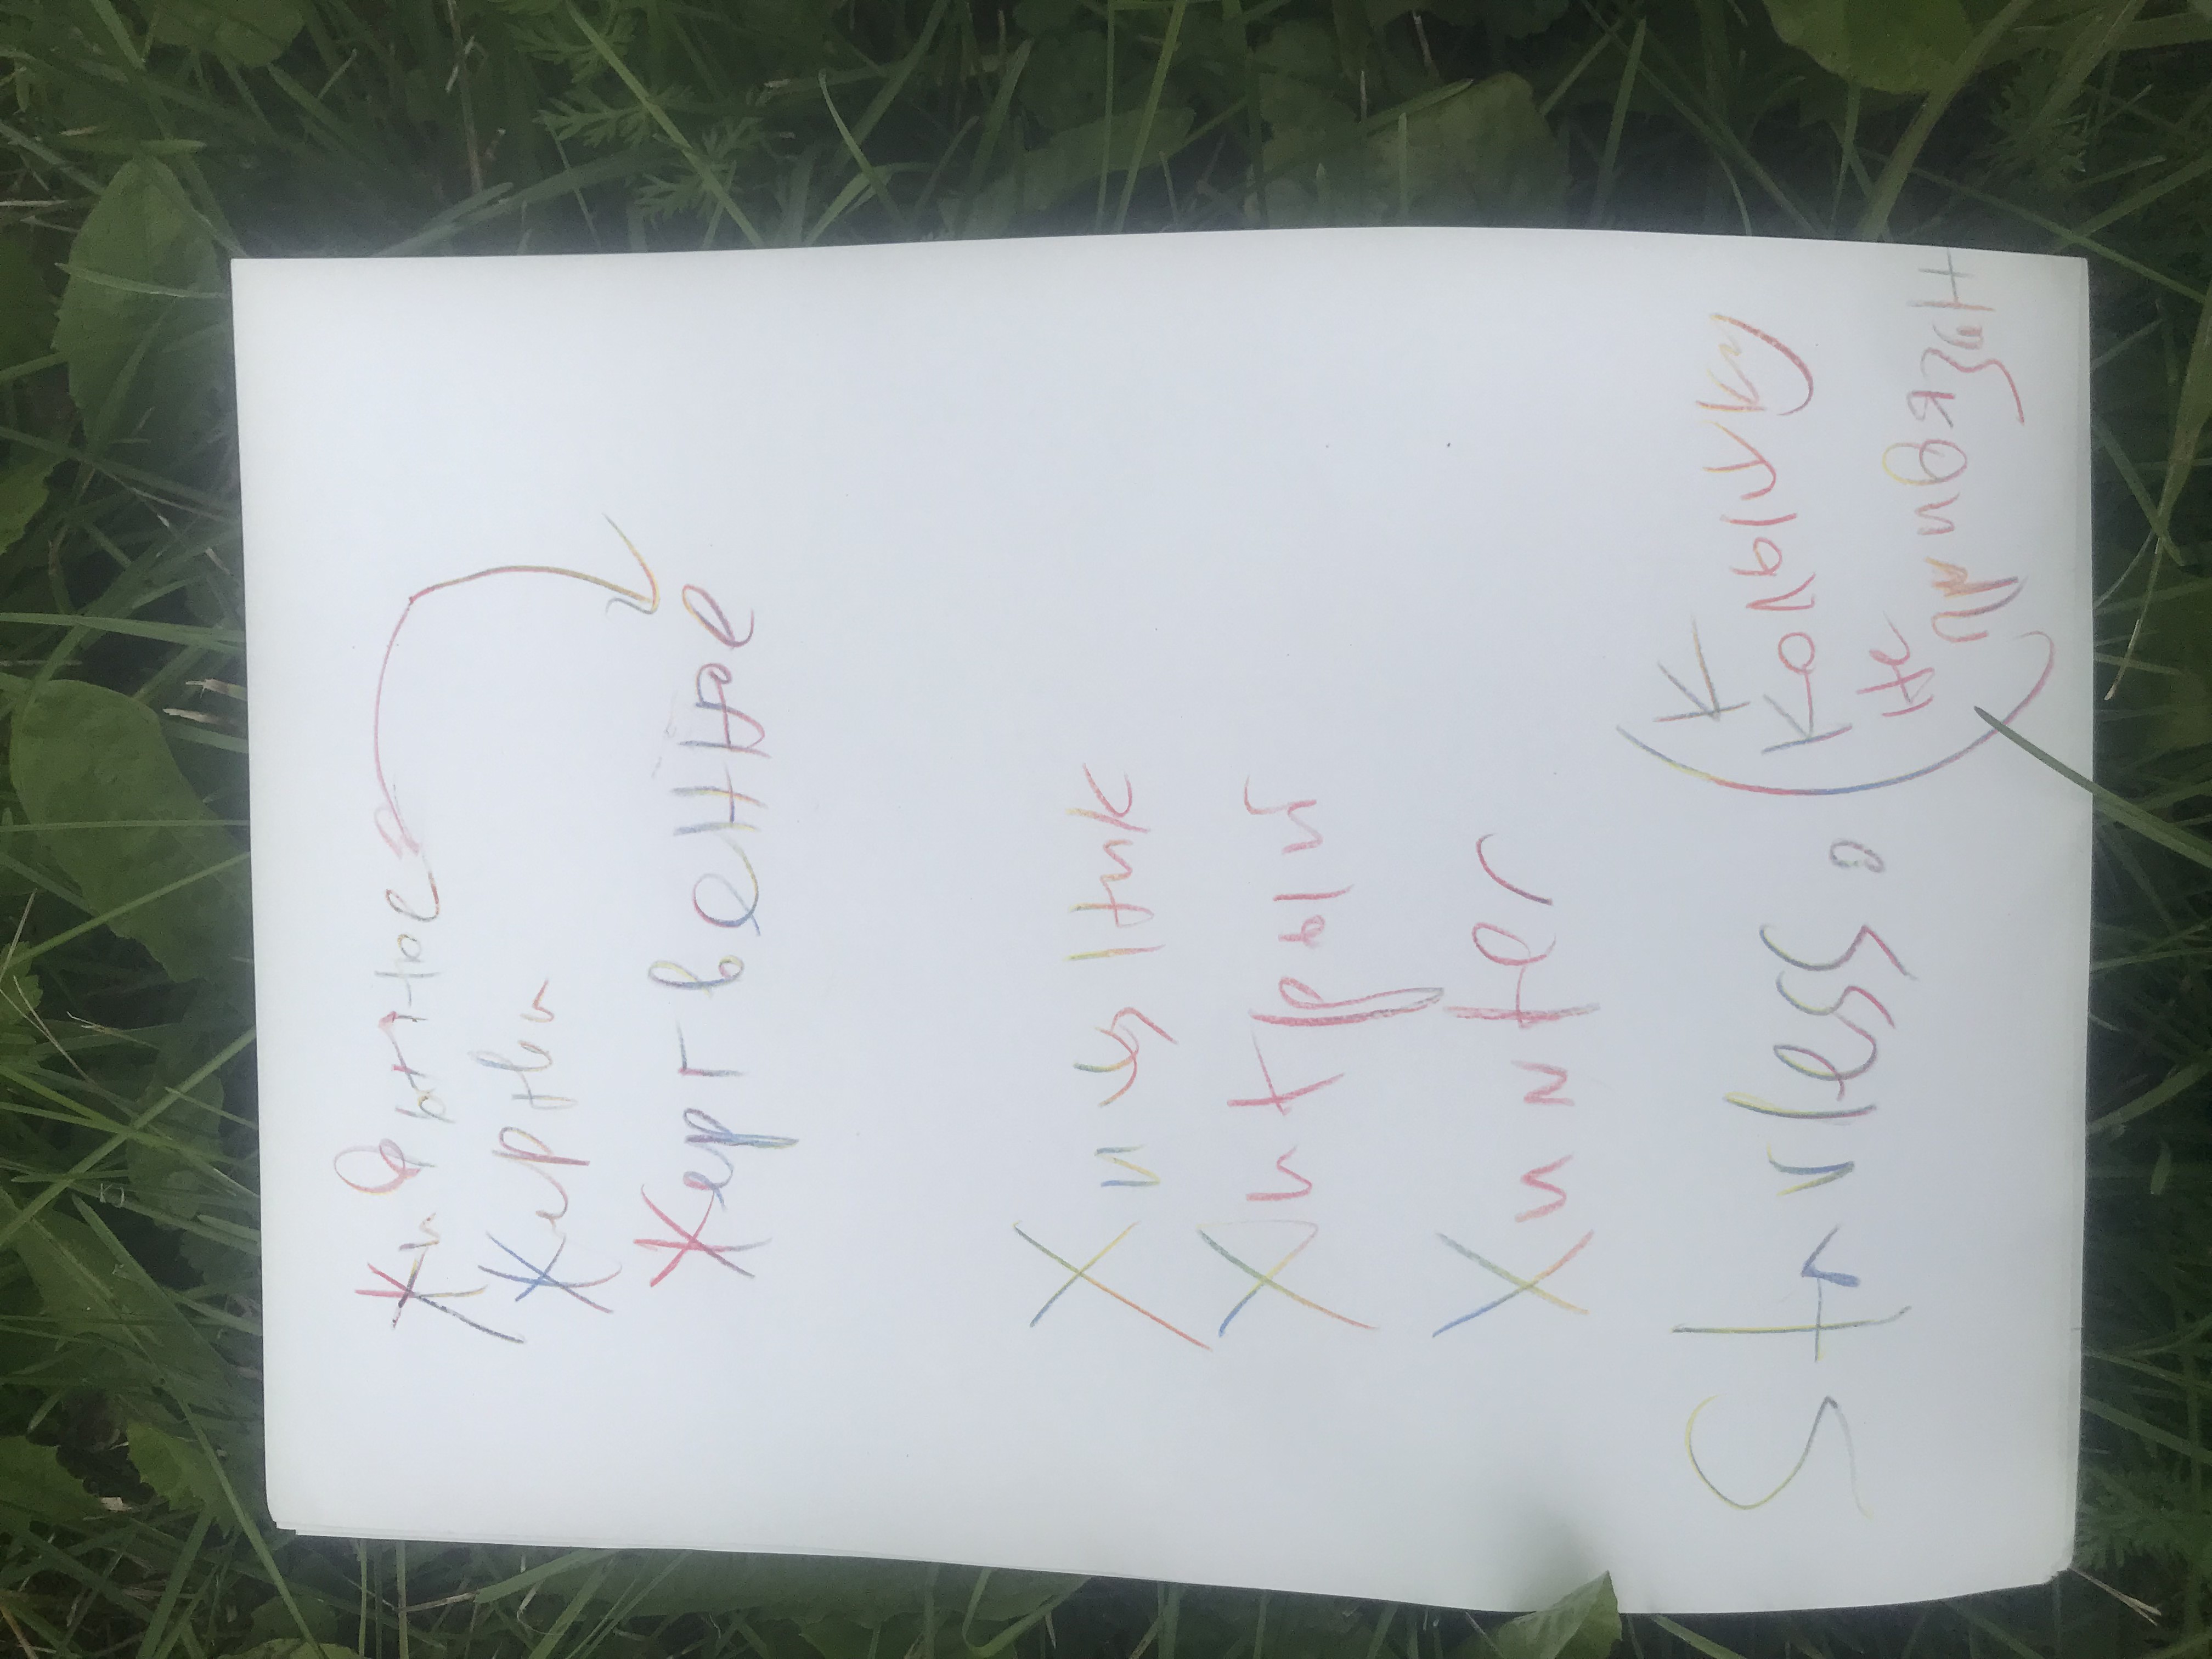 Животное
Жертва
Жертвенное
Хищник
Хитрый
Хиnter
Starless.
(К
колышку
не
привязан